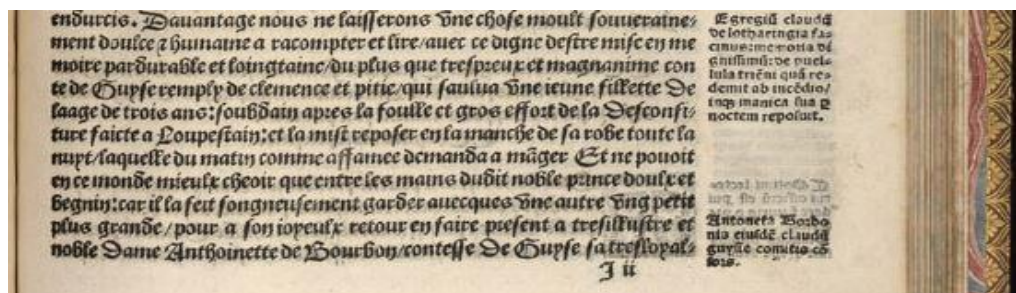 endurcis. Davantage nous ne laisserons vne chose moult souueraine-
ment doulce ⁊ humaine a racompter et lire/auec ce digne destre mise en me
moire pardurable et loingtaine/du plus que trespreux et magnanime con
te de Guyse remply de clemence et pitie/qui saulua vne ieune fillette De
laage de trois ans: soubdain apres la foulle et gros effort de la Desconfi-
ture faicte a Loupestain: et la mist reposer en la manche de sa robe toute la
nuyt/laquelle du matin comme affamee demanda a mãger Et ne pouoit
en ce monde mieulx cheoir que entre les mains dudit noble prince doulx et
begnin: car il la feit songneusement garder auecques vne autre vng petit
plus grande/pour a son ioyeulx retour en faire present a tresillustre et
noble Dame Anthoinette de Bourbon/contesse De Guyse sa tresloyal-
J ii
Egregiũ claudii
de lotharingia fa-
cinus: memoria di
gnissimũ: de puel-
lula triẽni quã re-
demit ab incẽdio/
inqʒ manica sua ꝑ
noctem reposuit.
Antoneta Borbo
nia eiusdẽ claudii
guysie comitis cõ
sors.